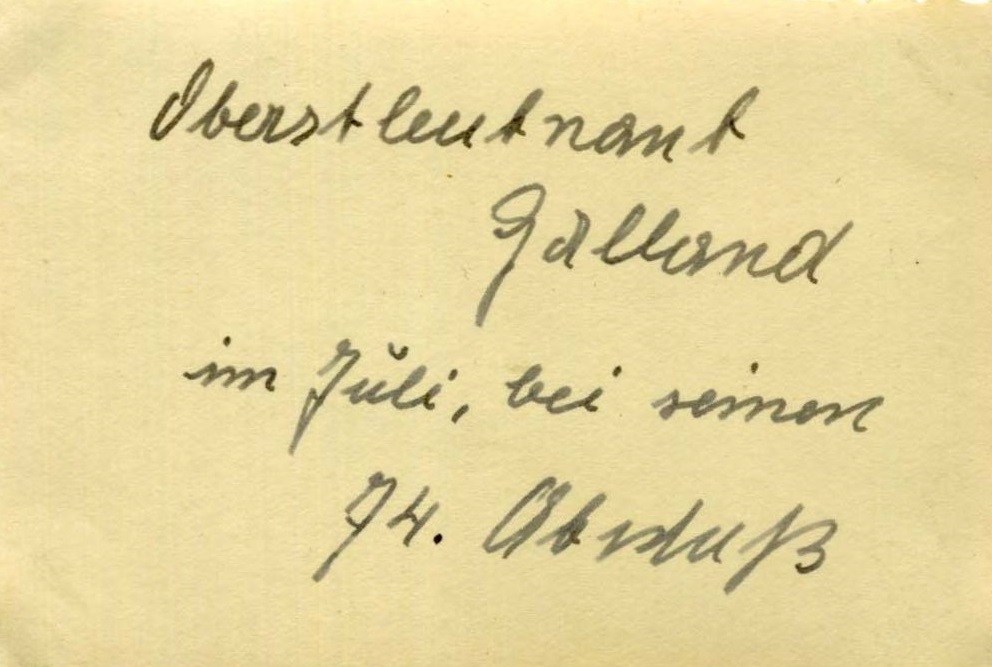 Oberstleutnant
Galland
im Juli, bei seinen
74. Abschuß